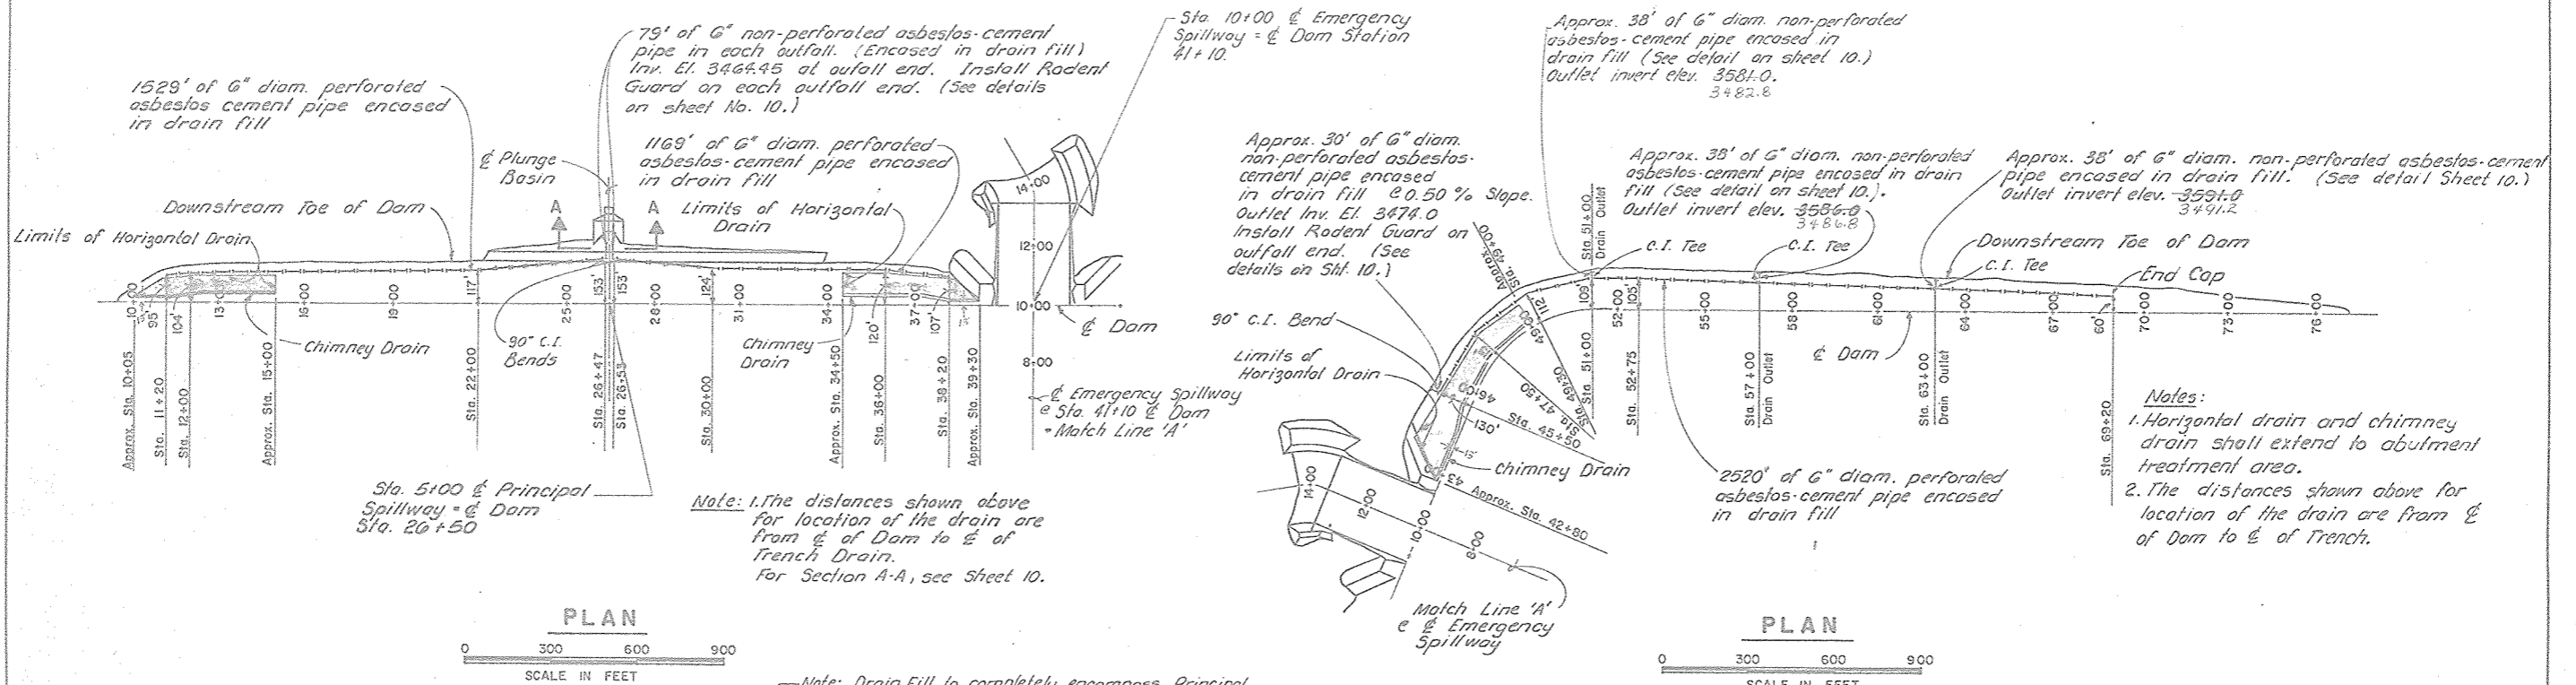 1529' of 6" diam. perforated
asbestos cement pipe encased
in drain fill
79' of 6" non-perforated asbestos-cement
pipe in each outfall. (Encased in drain fill)
Inv. El. 3464.45 at oufall end. Install Rodent
Guard on each outfall end. (See details
on sheet No. 10.)
1169' of 6" diam. perforated
asbestos-cement pipe encased
in drain fill
Sta. 10+00 ℄ Emergency
Spillway = ℄ Dam Station
41+10.
℄ Plunge
Basin
Downstream Toe of Dam
Limits of Horizontal Drain
A
A
Limits of Horizontal
Drain
14+00
12+00
10+00
8+00
10+00
95'
104'
13+00
16+00
19+00
117'
25+00
153'
153'
28+00
124'
31+00
34+00
120'
37+00
107'
℄ Dam
Chimney Drain
90° C.I.
Bends
Chimney
Drain
Approx. Sta. 10+05
Sta. 11+20
Sta. 12+00
Approx. Sta. 15+00
Sta. 22+00
Sta. 26+47
Sta. 26+53
Sta. 30+00
Approx. Sta. 34+50
Sta. 36+00
Sta. 38+20
Approx. Sta. 39+30
℄ Emergency Spillway
@ Sta. 41+10 ℄ Dam
- Match Line 'A'
Sta. 5+00 ℄ Principal
Spillway = ℄ Dam
Sta. 26+50
Note: 1. The distances shown above
for location of the drain are
from ℄ of Dam to ℄ of
Trench Drain.
For Section A-A, see Sheet 10.
PLAN
0 300 600 900
SCALE IN FEET
Note: Drain Fill to completely encompass Principal
Approx. 38' of 6" diam. non-perforated
asbestos-cement pipe encased in
drain fill (See detail on sheet 10.)
Outlet invert elev. 3581.0.
3482.8
Approx. 30' of 6" diam.
non-perforated asbestos-
cement pipe encased
in drain fill @ 0.50 % Slope.
Outlet Inv. El. 3474.0
Install Rodent Guard on
outfall end. (See
details on Sht. 10.)
Approx. 38' of 6" diam. non-perforated
asbestos-cement pipe encased in drain
fill (See detail on sheet 10.).
Outlet invert elev. 3586.0
3486.8
Approx. 38' of 6" diam. non-perforated asbestos-cement
pipe encased in drain fill. (See detail Sheet 10.)
Outlet invert elev. 3591.0
3491.2
Approx. Sta. 49+00
Sta. 51+00
Drain Outlet
C.I. Tee
C.I. Tee
Downstream Toe of Dam
C.I. Tee
End Cap
90° C.I. Bend
Limits of
Horizontal Drain
112'
109'
52+00
105'
55+00
58+00
61+00
64+00
67+00
60'
70+00
73+00
76+00
49+00
46+00
43
130'
15'
℄ Dam
Sta. 45+50
Sta. 47+50
Sta. 49+50
Sta. 51+00
Sta. 52+75
Sta. 57+00
Drain Outlet
Sta. 63+00
Drain Outlet
Sta. 69+20
Chimney Drain
Approx. Sta. 42+80
14+00
12+00
10+00
8+00
2520' of 6" diam. perforated
asbestos-cement pipe encased
in drain fill
Match Line 'A'
@ ℄ Emergency
Spillway
Notes:
1. Horizontal drain and chimney
drain shall extend to abutment
treatment area.
2. The distances shown above for
location of the drain are from ℄
of Dam to ℄ of Trench.
PLAN
0 300 600 900
SCALE IN FEET